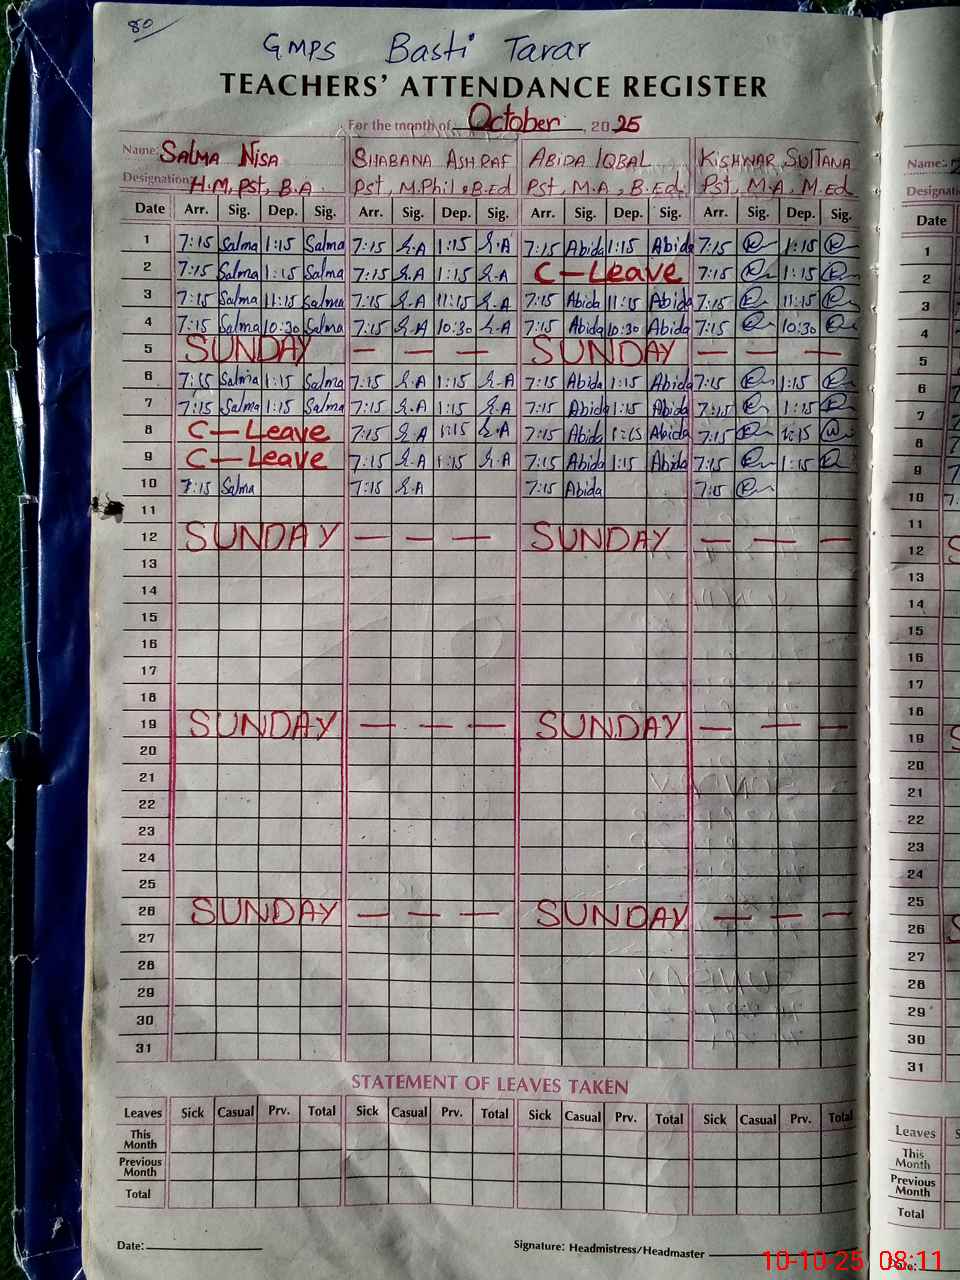 80
GMPS Basti Tarar
TEACHERS' ATTENDANCE REGISTER
For the month of October, 2025
Name: SALMA NISA SHABANA ASHRAF ABIDA IQBAL KISHWAR SULTANA Name:
Designation H.M, Pst, B.A Pst, M.Phil, B.Ed Pst, M.A, B.Ed Pst, M.A, M.Ed
Date Arr. Sig. Dep. Sig. Arr. Sig. Dep. Sig. Arr. Sig. Dep. Sig. Arr. Sig. Dep. Sig. Date
1 7:15 Salma 1:15 Salma 7:15 S.A 1:15 S.A 7:15 Abida 1:15 Abida 7:15 1:15 1
2 7:15 Salma 1:15 Salma 7:15 S.A 1:15 S.A C-Leave 7:15 1:15 2
3 7:15 Salma 11:15 Salma 7:15 S.A 11:15 S.A 7:15 Abida 11:15 Abida 7:15 11:15 3
4 7:15 Salma 10:30 Salma 7:15 S.A 10:30 S.A 7:15 Abida 10:30 Abida 7:15 10:30 4
5 SUNDAY — — — SUNDAY — — — 5
6 7:15 Salma 1:15 Salma 7:15 S.A 1:15 S.A 7:15 Abida 1:15 Abida 7:15 1:15 6
7 7:15 Salma 1:15 Salma 7:15 S.A 1:15 S.A 7:15 Abida 1:15 Abida 7:15 1:15 7
8 C-Leave 7:15 S.A 1:15 S.A 7:15 Abida 1:15 Abida 7:15 1:15 8
9 C-Leave 7:15 S.A 1:15 S.A 7:15 Abida 1:15 Abida 7:15 1:15 9
10 7:15 Salma 7:15 S.A 7:15 Abida 7:15 10
11 11
12 SUNDAY — — — SUNDAY — — — 12
13 13
14 14
15 15
16 16
17 17
18 18
19 SUNDAY — — — SUNDAY — — — 19
20 20
21 21
22 22
23 23
24 24
25 25
26 SUNDAY — — — SUNDAY — — — 26
27 27
28 28
29 29
30 30
31 31
STATEMENT OF LEAVES TAKEN
Leaves Sick Casual Prv. Total Sick Casual Prv. Total Sick Casual Prv. Total Sick Casual Prv. Total Leaves
This Month This Month
Previous Month Previous Month
Total Total
Date: Signature: Headmistress/Headmaster
10-10-25 08:11